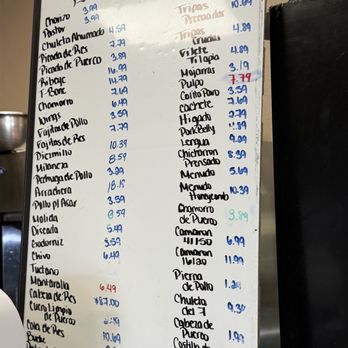 3.99
Chorizo 3.99
Pastor
Chuleta Ahumada 4.59
Picada de Res 7.79
Picada de Puerco 3.89
Ribeye 16.99
T-Bone 14.79
Chamorro 7.69
Wings 6.49
Fajitas de Pollo 3.59
Fajitas de Res 7.79
Diezmillo 10.39
Milanesa 8.59
Pechuga de Pollo 3.59
Arrachera 18.15
Pollo p/ Asar 3.59
Molida 8.59
Discada 5.49
Gaadornz 3.59
Chivo 6.49
Tuetano
Mantarralla 6.49
Cabeza de Res $87.00
Cuero Limpio
de Puerco
Cola de Res 10.69
Buche
Tripas 10.69
Prensadas
Tripas 4.89
Crudas
Filete 4.89
Tilapia
Mojarras 3.19
Pulpo 7.79
Colita Pavo 3.59
Cachete 7.69
Higado 2.79
Pork Belly
Lengua 9.89
Chicharron 8.39
Prensado
Menudo 5.69
Menudo 10.39
Honeycomb
Chamorro 3.89
de Puerco
Camaron 6.99
41/50
Camaron 11.99
16/20
Pierna
de Pollo
Chuleta 9.39
del 7
Cabeza de
Puerco